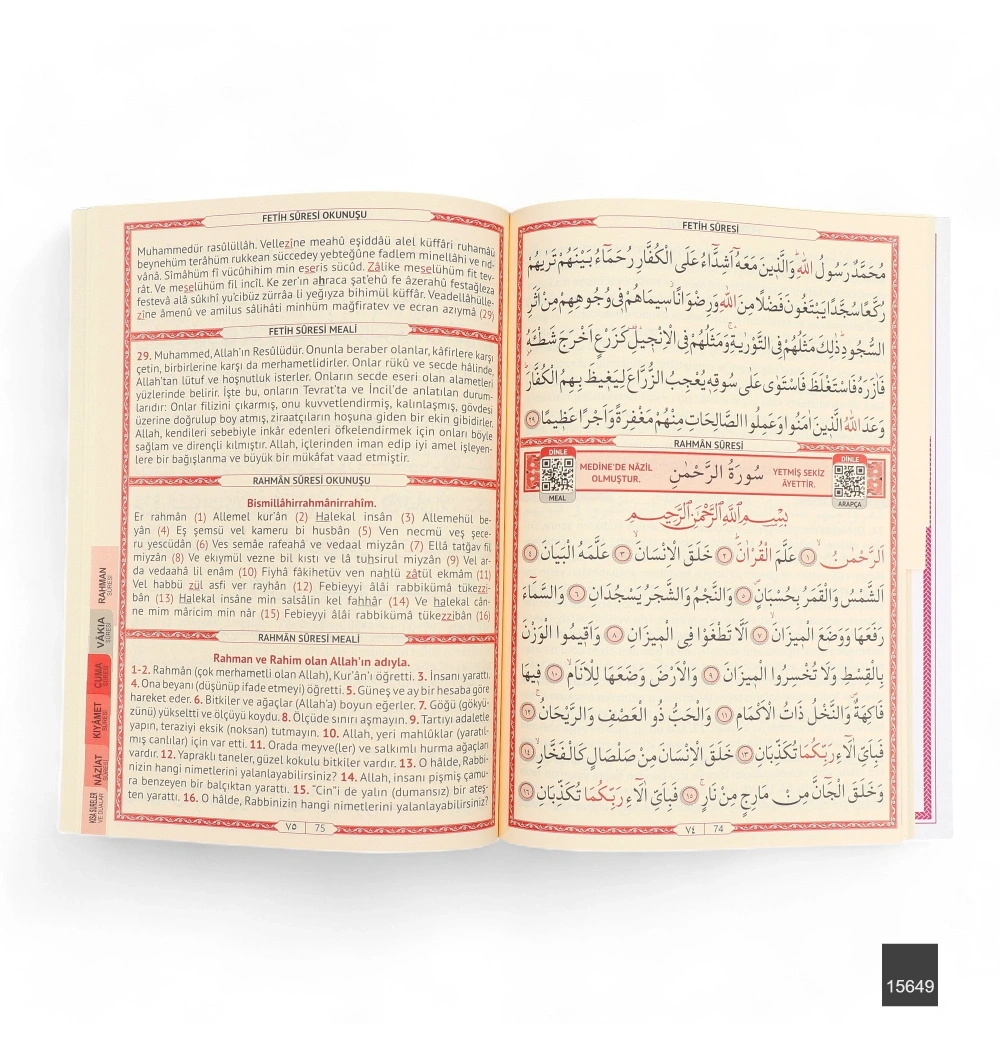 FETİH SÛRESİ OKUNUŞU
Muhammedür rasûlüllâh. Vellezîne meahû eşiddâü alel küffâri ruhamâü
beynehüm terâhüm rukkean süccedey yebteğûne fadlem minellâhi ve rıd-
vânâ. Sîmâhüm fî vücûhihim min eseris sücûd. Zâlike meselühüm fit tev-
rât. Ve meselühüm fil incîl. Ke zer'ın ahraca şat'ehû fe âzerahû festağleza
festevâ alâ sûkıhî yu'cibüz zürrâa li yeğıyza bihimül küffâr. Veadellâhülle-
zîne âmenû ve amilus sâlihâti minhüm mağfiratev ve ecran azıymâ (29)
FETİH SÛRESİ MEALİ
29. Muhammed, Allah'ın Resûlüdür. Onunla beraber olanlar, kâfirlere karşı
çetin, birbirlerine karşı da merhametlidirler. Onlar rükû ve secde hâlinde,
Allah'tan lütuf ve hoşnutluk isterler. Onların secde eseri olan alametleri
yüzlerinde belirir. İşte bu, onların Tevrat'ta ve İncil'de anlatılan durum-
larıdır: Onlar filizini çıkarmış, onu kuvvetlendirmiş, kalınlaşmış, gövdesi
üzerine doğrulup boy atmış, ziraatçıların hoşuna giden bir ekin gibidirler.
Allah, kendileri sebebiyle inkâr edenleri öfkelendirmek için onları böyle
sağlam ve dirençli kılmıştır. Allah, içlerinden iman edip iyi amel işleyen-
lere bir bağışlanma ve büyük bir mükâfat vaad etmiştir.
RAHMÂN SÛRESİ OKUNUŞU
Bismillâhirrahmânirrahîm.
Er rahmân (1) Allemel kur'ân (2) Halekal insân (3) Allemehül be-
yân (4) Eş şemsü vel kameru bi husbân (5) Ven necmü veş şece-
ru yescüdân (6) Ves semâe rafeahâ ve vedaal miyzân (7) Ellâ tatğav fil
miyzân (8) Ve ekıymül vezne bil kıstı ve lâ tuhsirul miyzân (9) Vel ar-
da vedaahâ lil enâm (10) Fiyhâ fâkihetüv ven nahlü zâtül ekmâm (11)
Vel habbü zül asfi ver rayhân (12) Febieyyi âlâi rabbikümâ tükezzi-
bân (13) Halekal insâne min salsâlin kel fahhâr (14) Ve halekal cân-
ne mim mâricim min nâr (15) Febieyyi âlâi rabbikümâ tükezzibân (16)
RAHMÂN SÛRESİ MEALİ
Rahman ve Rahim olan Allah'ın adıyla.
1-2. Rahmân (çok merhametli olan Allah), Kur'ân'ı öğretti. 3. İnsanı yarattı.
4. Ona beyanı (düşünüp ifade etmeyi) öğretti. 5. Güneş ve ay bir hesaba göre
hareket eder. 6. Bitkiler ve ağaçlar (Allah'a) boyun eğerler. 7. Göğü (gökyü-
zünü) yükseltti ve ölçüyü koydu. 8. Ölçüde sınırı aşmayın. 9. Tartıyı adaletle
yapın, teraziyi eksik (noksan) tutmayın. 10. Allah, yeri mahlûklar (yaratıl-
mış canlılar) için var etti. 11. Orada meyve(ler) ve salkımlı hurma ağaçları
vardır. 12. Yapraklı taneler, güzel kokulu bitkiler vardır. 13. O hâlde, Rabbi-
nizin hangi nimetlerini yalanlayabilirsiniz? 14. Allah, insanı pişmiş çamu-
ra benzeyen bir balçıktan yarattı. 15. "Cin"i de yalın (dumansız) bir ateş-
ten yarattı. 16. O hâlde, Rabbinizin hangi nimetlerini yalanlayabilirsiniz?
٧٥ 75
RAHMÂN SÛRESİ
VÂKIA SÛRESİ
CUMA SÛRESİ
KIYÂMET SÛRESİ
NÂZİAT SÛRESİ
KISA SÛRELER VE DUALAR
FETİH SÛRESİ
مُحَمَّدٌ رَسُولُ اللّٰهِ وَالَّذ۪ينَ مَعَهُٓ اَشِدَّٓاءُ عَلَى الْكُفَّارِ رُحَمَٓاءُ بَيْنَهُمْ تَرٰيهُمْ
رُكَّعًا سُجَّدًا يَبْتَغُونَ فَضْلًا مِنَ اللّٰهِ وَرِضْوَانًاۘ س۪يمَاهُمْ ف۪ي وُجُوهِهِمْ مِنْ اَثَرِ
السُّجُودِۜ ذٰلِكَ مَثَلُهُمْ فِي التَّوْرٰيةِۚ وَمَثَلُهُمْ فِي الْاِنْج۪يلِ۠ كَزَرْعٍ اَخْرَجَ شَطْـَٔهُ
فَاٰزَرَهُ فَاسْتَغْلَظَ فَاسْتَوٰى عَلٰى سُوقِه۪ يُعْجِبُ الزُّرَّاعَ لِيَغ۪يظَ بِهِمُ الْكُفَّارَۜ
وَعَدَ اللّٰهُ الَّذ۪ينَ اٰمَنُوا وَعَمِلُوا الصَّالِحَاتِ مِنْهُمْ مَغْفِرَةً وَاَجْرًا عَظ۪يمًا ﴿٢٩﴾
RAHMÂN SÛRESİ
DİNLE
MEAL
MEDİNE'DE NÂZİL
OLMUŞTUR.
سُورَةُ الرَّحْمٰنِ
YETMİŞ SEKİZ
ÂYETTİR.
DİNLE
ARAPÇA
بِسْمِ اللّٰهِ الرَّحْمٰنِ الرَّح۪يمِ
اَلرَّحْمٰنُۙ ﴿١﴾ عَلَّمَ الْقُرْاٰنَۜ ﴿٢﴾ خَلَقَ الْاِنْسَانَۙ ﴿٣﴾ عَلَّمَهُ الْبَيَانَ ﴿٤﴾
اَلشَّمْسُ وَالْقَمَرُ بِحُسْبَانٍۖ ﴿٥﴾ وَالنَّجْمُ وَالشَّجَرُ يَسْجُدَانِ ﴿٦﴾ وَالسَّمَٓاءَ
رَفَعَهَا وَوَضَعَ الْم۪يزَانَۙ ﴿٧﴾ اَلَّا تَطْغَوْا فِي الْم۪يزَانِ ﴿٨﴾ وَاَق۪يمُوا الْوَزْنَ
بِالْقِسْطِ وَلَا تُخْسِرُوا الْم۪يزَانَ ﴿٩﴾ وَالْاَرْضَ وَضَعَهَا لِلْاَنَامِۙ ﴿١٠﴾ ف۪يهَا
فَاكِهَةٌۖ وَالنَّخْلُ ذَاتُ الْاَكْمَامِۖ ﴿١١﴾ وَالْحَبُّ ذُو الْعَصْفِ وَالرَّيْحَانُۚ ﴿١٢﴾
فَبِاَيِّ اٰلَٓاءِ رَبِّكُمَا تُكَذِّبَانِ ﴿١٣﴾ خَلَقَ الْاِنْسَانَ مِنْ صَلْصَالٍ كَالْفَخَّارِۙ ﴿١٤﴾
وَخَلَقَ الْجَٓانَّ مِنْ مَارِجٍ مِنْ نَارٍۚ ﴿١٥﴾ فَبِاَيِّ اٰلَٓاءِ رَبِّكُمَا تُكَذِّبَانِ ﴿١٦﴾
٧٤ 74
15649